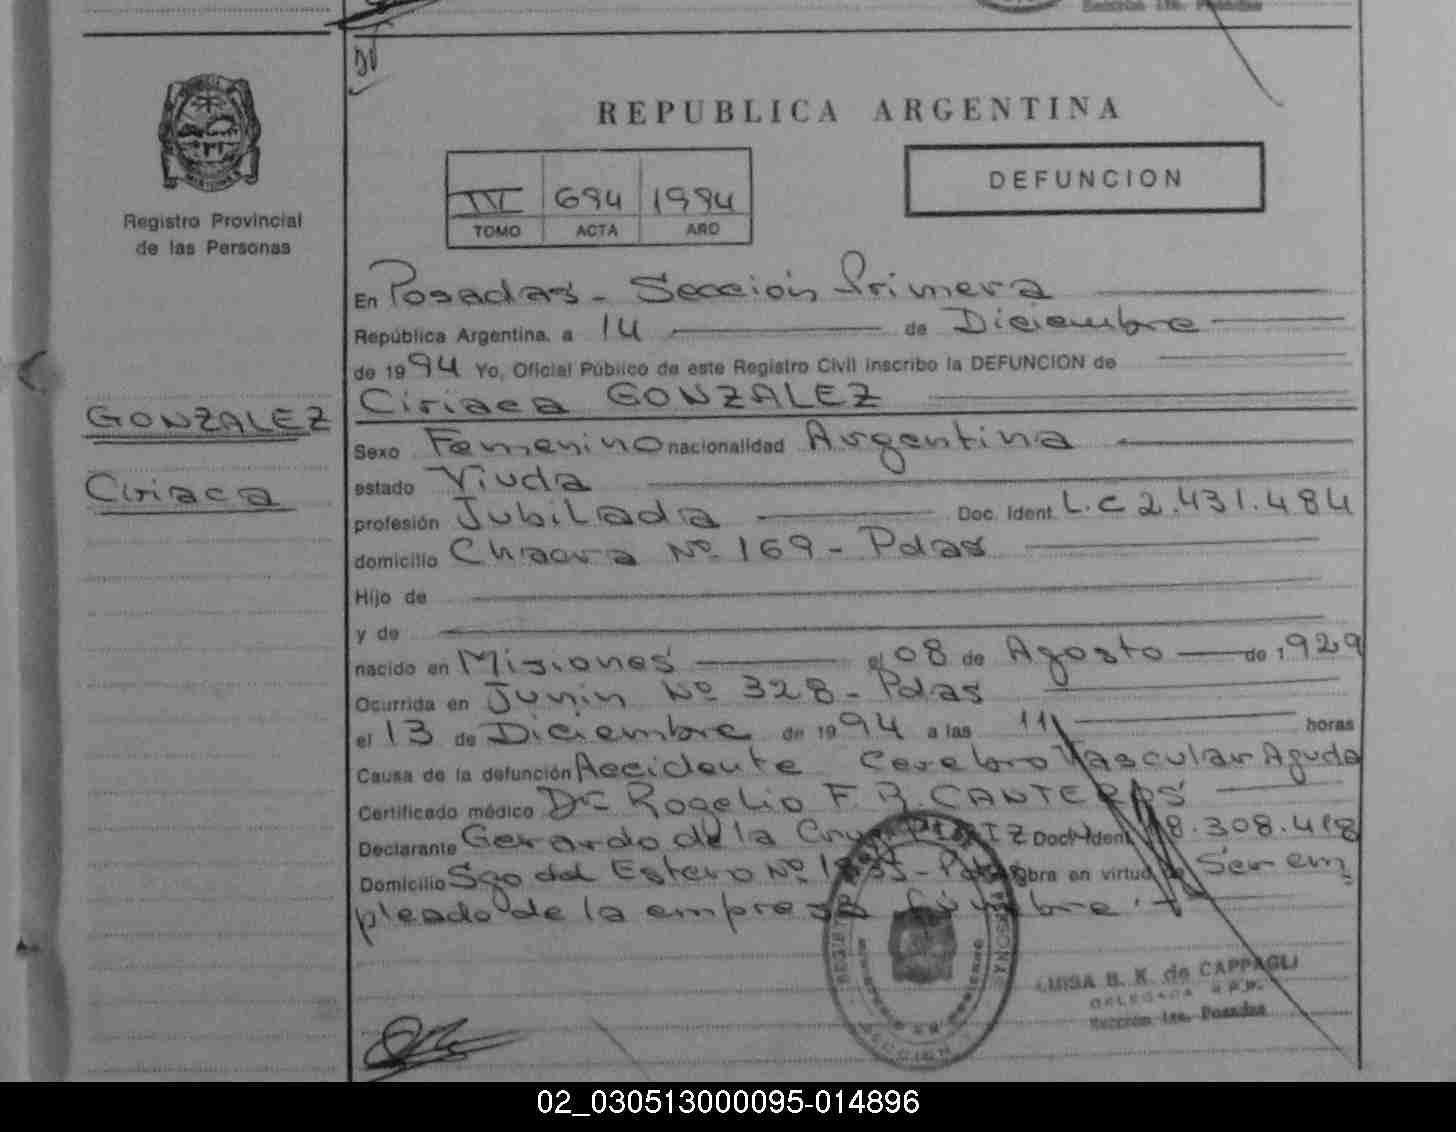 Sección 1ra. Posadas
REPUBLICA ARGENTINA
DEFUNCION
III 694 1994
TOMO ACTA AÑO
Registro Provincial
de las Personas
GONZALEZ
Ciriaca
En Posadas - Sección Primera
República Argentina, a 14 de Diciembre
de 1994 Yo, Oficial Público de este Registro Civil inscribo la DEFUNCION de
Ciriaca GONZALEZ
Sexo Femenino nacionalidad Argentina
estado Viuda
profesión Jubilada Doc. Ident. L.C 2.431.484
domicilio Chacra Nº 169 - Pdas
Hijo de
y de
nacido en Misiones el 08 de Agosto de 1929
Ocurrida en Junin Nº 328 - Pdas
el 13 de Diciembre de 1994 a las 11 horas
Causa de la defunción Accidente Cerebro Vascular Agudo
Certificado médico Dr Rogelio F. R. CANTEROS
Declarante Gerardo de la Cruz Doc. Ident. 8.308.418
Domicilio Sgo del Estero Nº - Pdas Obra en virtud de Ser em
pleado de la empresa fúnebre.
LUISA B. K. de CAPPAGLI
DELEGADA R.P.P.
Sección 1ra. Posadas
02_030513000095-014896